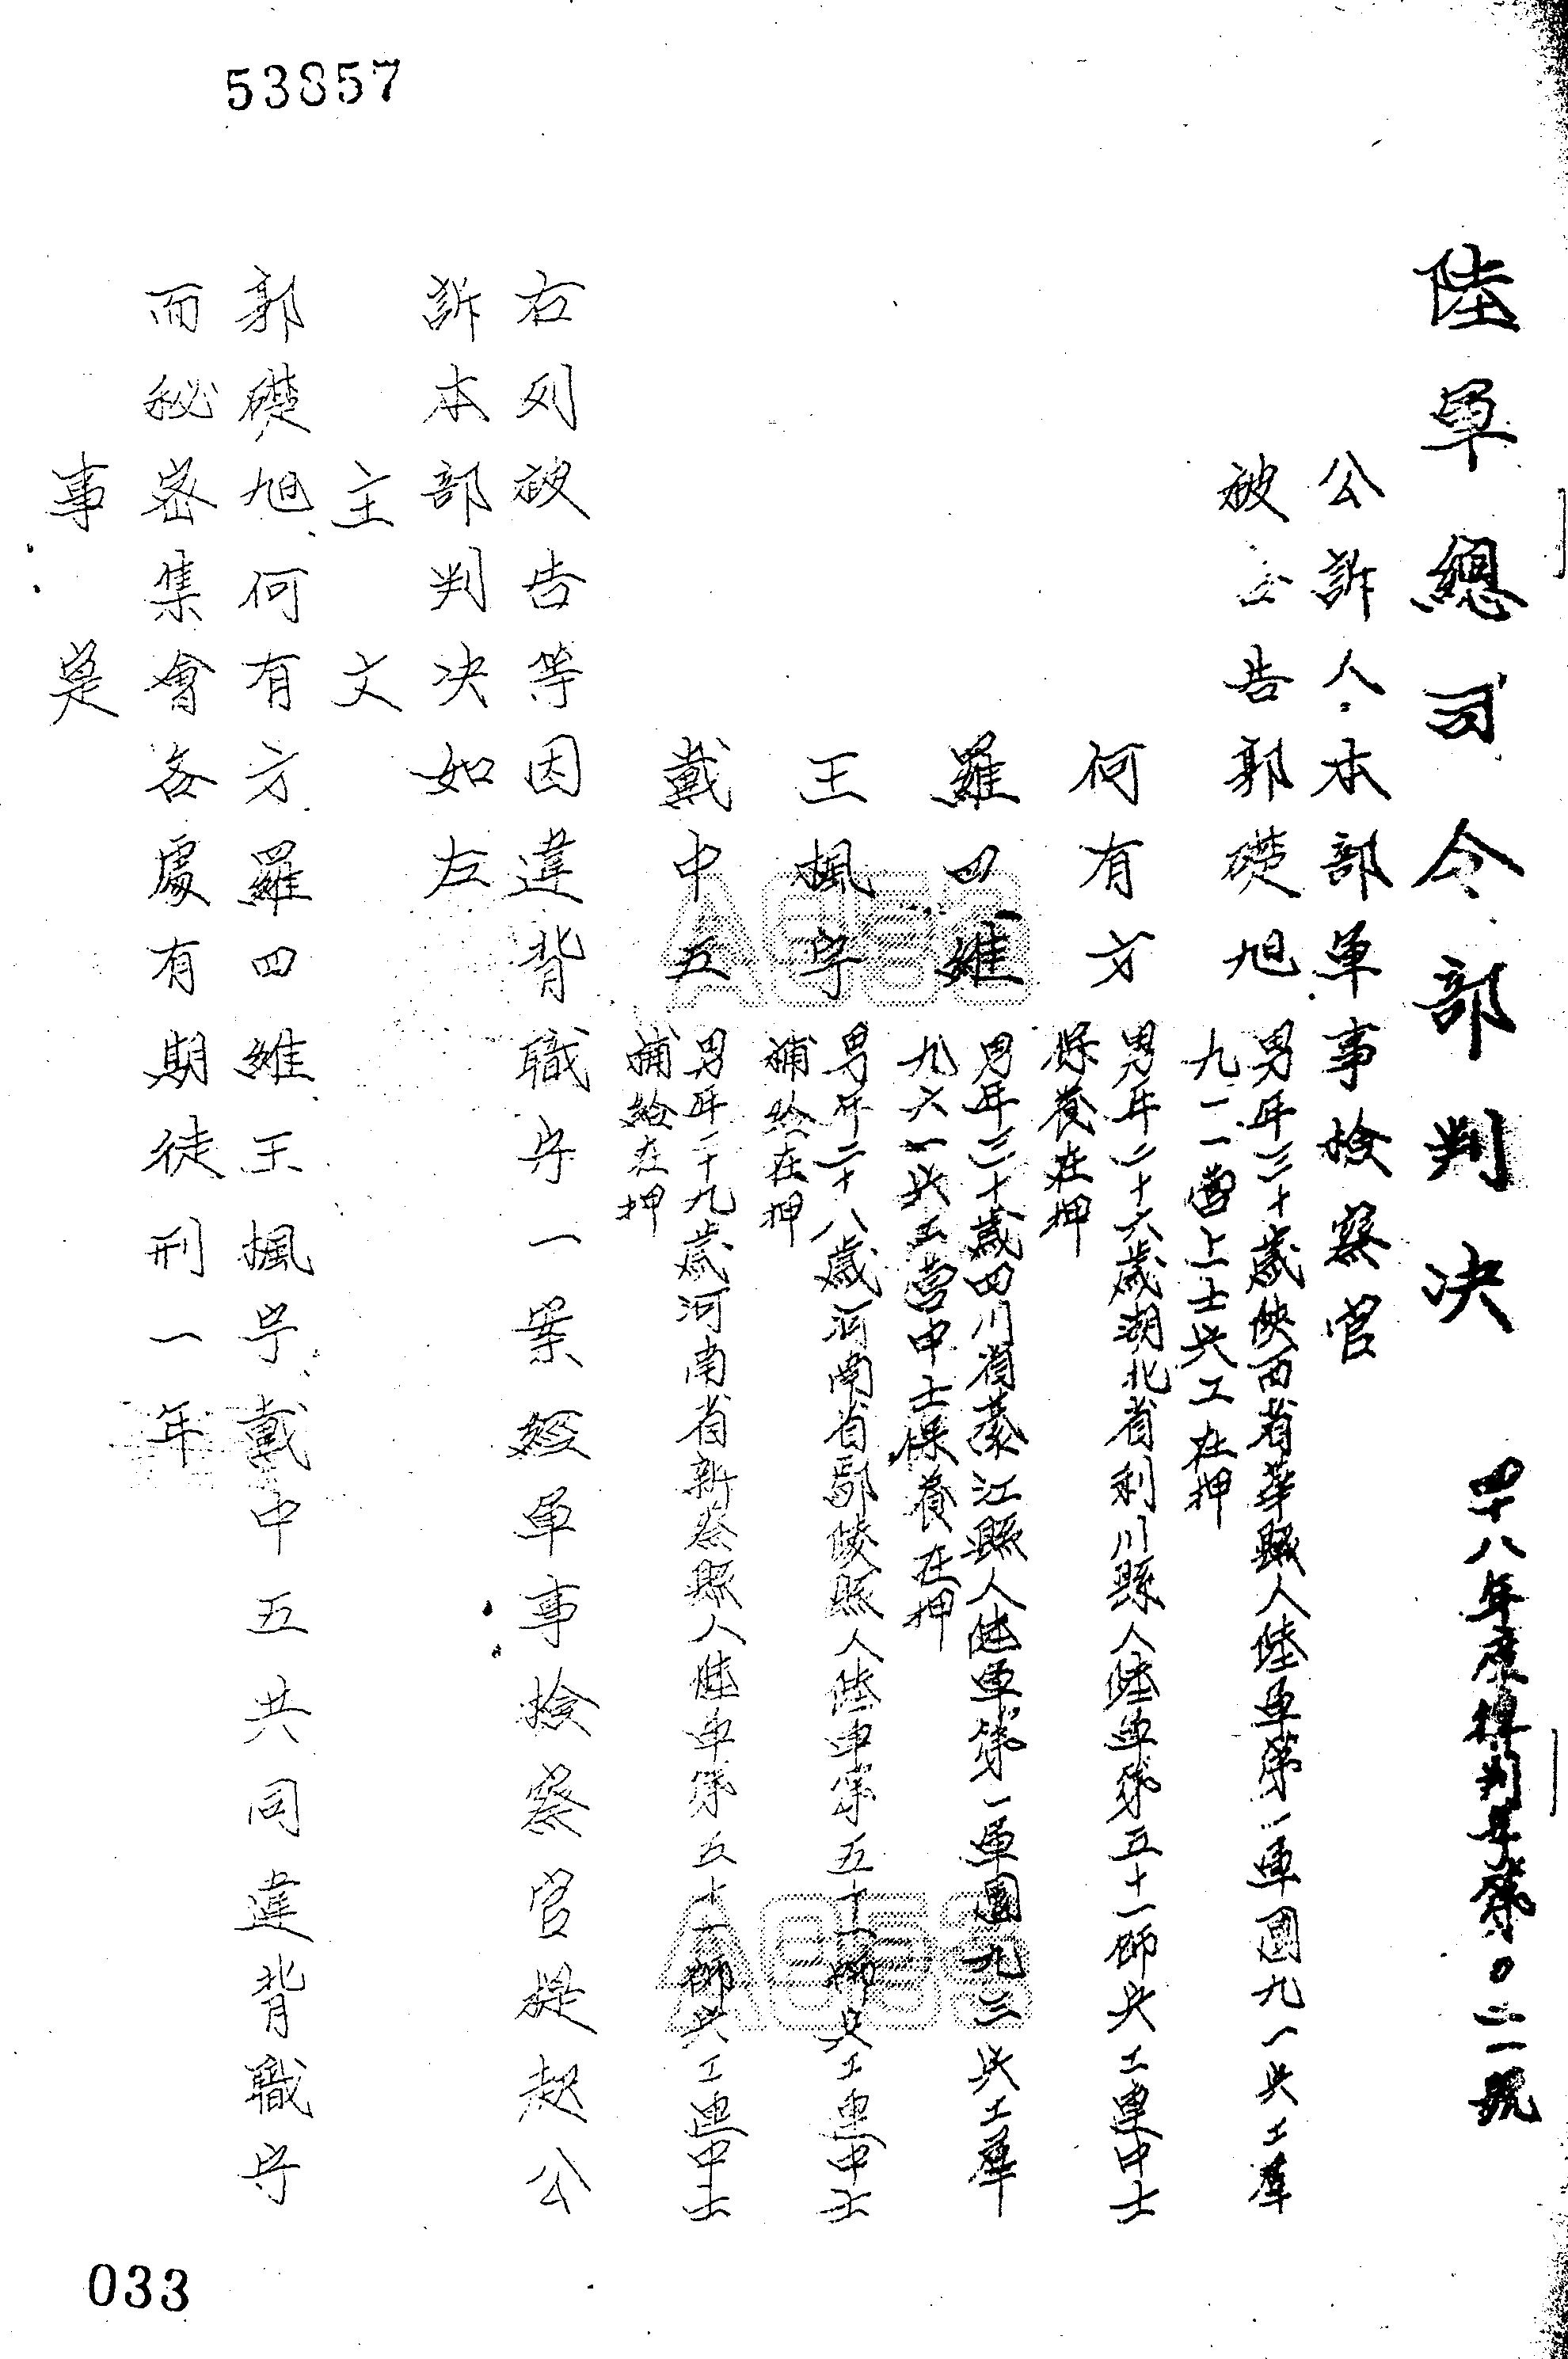 53857
陸軍總司令部判決
四十八年度揮判字第〇二一號
公訴人本部軍事檢察官
被告郭礎旭
男年三十歲陝西省華縣人陸軍第一軍團九一兵工群
九一一營上士兵工在押
何有方
男年二十六歲湖北省利川縣人陸軍第五十一師兵工連中士
保養在押
羅四維
男年三十歲四川省綦江縣人陸軍第一軍團九三兵工群
九六一兵工營中士保養在押
王楓宇
男年二十八歲河南省鄢陵縣人陸軍第五十一師兵工連中士
補給在押
戴中五
男年二十九歲河南省新蔡縣人陸軍第五十一師兵工連中士
補給在押
右列被告等因違背職守一案經軍事檢察官提起公
訴本部判决如左
主文
郭礎旭何有方羅四維王楓宇戴中五共同違背職守
而秘密集會各處有期徒刑一年
事實
033
A053
A053